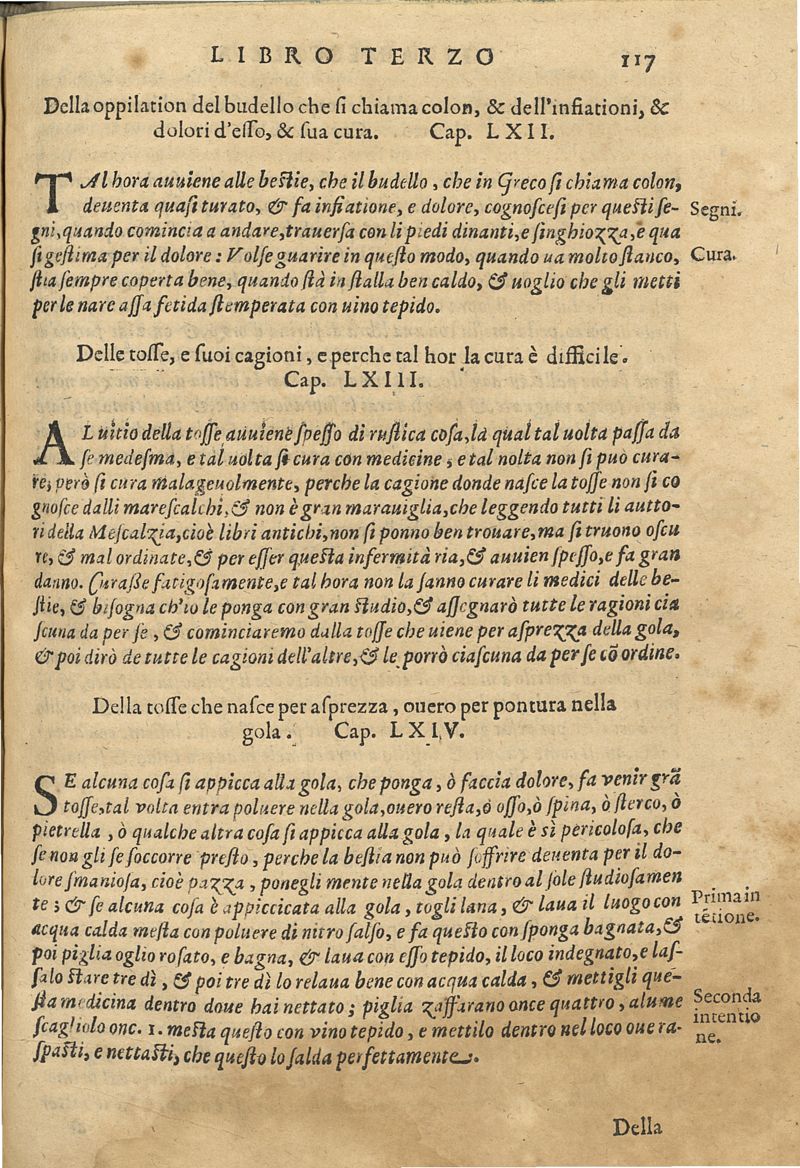 LIBRO TERZO 117
Della oppilation del budello che si chiama colon, & dell'infiationi, &
dolori d'esso, & sua cura. Cap. LXII.
TAl hora auuiene alle bestie, che il budello, che in Greco si chiama colon,
deuenta quasi turato, & fa infiatione, e dolore, cognoscesi per questi se-
gni, quando comincia a andare, trauersa con li piedi dinanti, e singhiozza, e qua
si gestima per il dolore: Volse guarire in questo modo, quando ua molto stanco,
stia sempre coperta bene, quando stà in stalla ben caldo, & uoglio che gli metti
per le nare assa fetida stemperata con uino tepido.
Segni.
Cura.
Delle tosse, e suoi cagioni, e perche tal hor la cura è difficile.
Cap. LXIII.
AL uitio della tosse auuiene spesso di rustica cosa, la qual tal uolta passa da
se medesma, e tal uolta si cura con medicine, e tal nolta non si può cura-
re, però si cura malageuolmente, perche la cagione donde nasce la tosse non si co
gnosce dalli marescalchi, & non è gran marauiglia, che leggendo tutti li autto-
ri della Mescalzia, cioè libri antichi, non si ponno ben trouare, ma si truono oscu
re, & mal ordinate, & per esser questa infermità ria, & auuien spesso, e fa gran
danno. Curasse fatigosamente, e tal hora non la sanno curare li medici delle be-
stie, & bisogna ch'io le ponga con gran studio, & assegnarò tutte le ragioni cia
scuna da per se, & cominciaremo dalla tosse che uiene per asprezza della gola,
& poi dirò de tutte le cagioni dell'altre, & le porrò ciascuna da per se cõ ordine.
Della tosse che nasce per asprezza, ouero per pontura nella
gola. Cap. LXIV.
SE alcuna cosa si appicca alla gola, che ponga, ò faccia dolore, fa venir grã
tosse, tal volta entra poluere nella gola, ouero resta, ò osso, ò spina, ò sterco, ò
pietrella, ò qualche altra cosa si appicca alla gola, la quale è sì pericolosa, che
se non gli se soccorre presto, perche la bestia non può soffrire deuenta per il do-
lore smaniosa, cioè pazza, ponegli mente nella gola dentro al sole studiosamen
te; & se alcuna cosa è appiccicata alla gola, togli lana, & laua il luogo con
acqua calda mesta con poluere di nitro salso, e fa questo con sponga bagnata, &
poi piglia oglio rosato, e bagna, & laua con esso tepido, il loco indegnato, e las-
salo stare tre dì, & poi tre dì lo relaua bene con acqua calda, & mettigli que-
sta medicina dentro doue hai nettato; piglia zaffarano once quattro, alume
scagliolo onc. 1. mesta questo con vino tepido, e mettilo dentro nel loco oue ra-
spasti, e nettasti, che questo lo salda perfettamente.
Prima in
tẽtione.
Seconda
intentio
ne.
Della